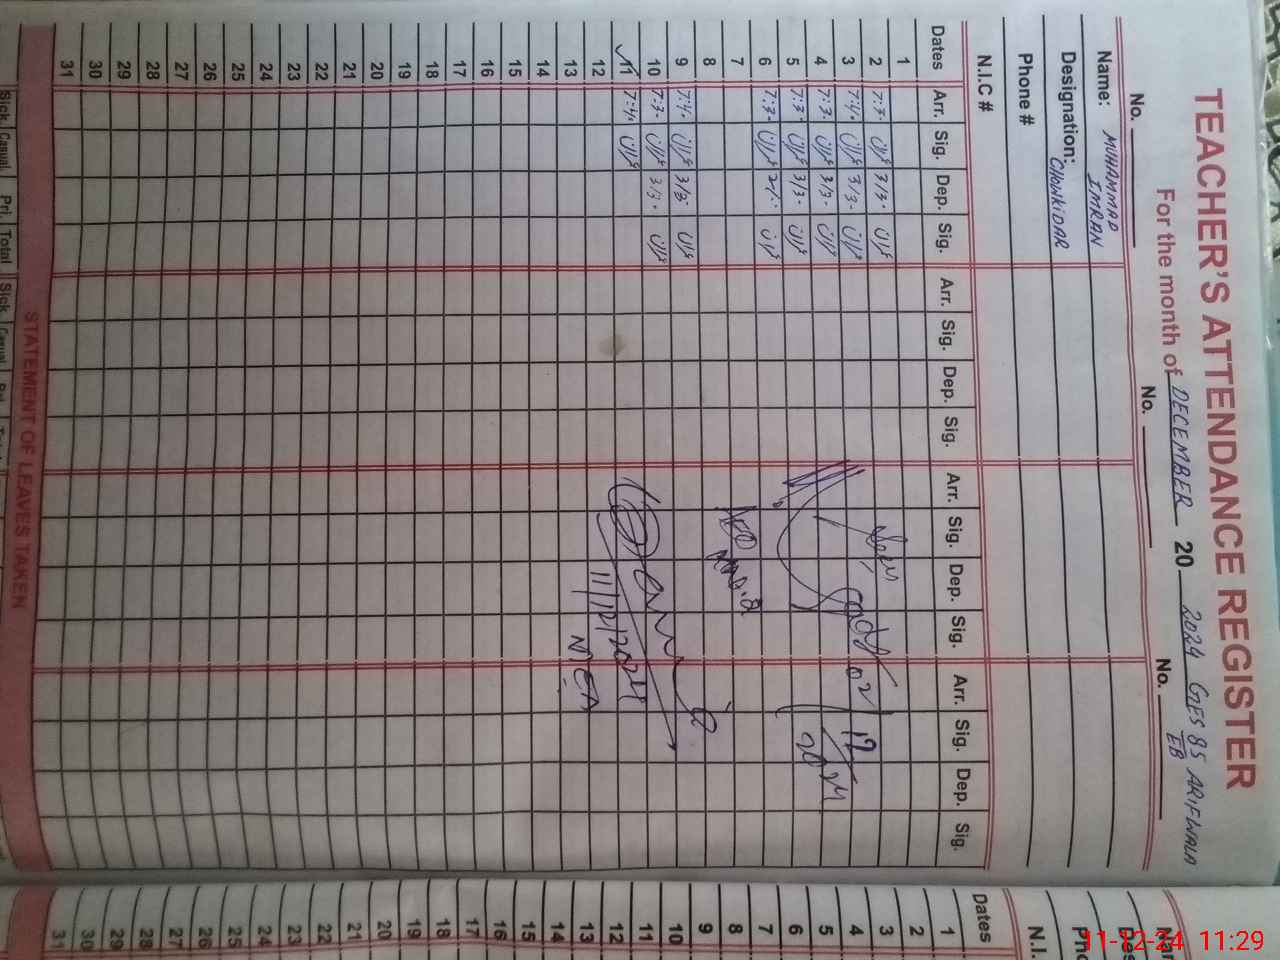 TEACHER'S ATTENDANCE REGISTER
For the month of DECEMBER 20 2024 GES 85/EB ARIFWALA
No. No. No.
Name: MUHAMMAD IMRAN
Designation: CHOWKIDAR
Phone #
N.I.C #
Dates Arr. Sig. Dep. Sig. Arr. Sig. Dep. Sig. Arr. Sig. Dep. Sig. Arr. Sig. Dep. Sig.
1
2 7:3. عمران 3/3. عمران
3 7:4. عمران 3/3. عمران
4 7:3. عمران 3/3. عمران
5 7:3. عمران 3/3. عمران
6 7:3. عمران عمران
7
8
9 7:4. عمران 3/3. عمران
10 7:3. عمران 3/3. عمران
11 7:4. عمران
12
13
14
15
16
17
18
19
20
21
22
23
24
25
26
27
28
29
30
31
Seen
02/12
2024
11/12/2024
MEA
STATEMENT OF LEAVES TAKEN
Sick. Casual. Pri. Total Sick. Casual
Dates
1
2
3
4
5
6
7
8
9
10
11
12
13
14
15
16
17
18
19
20
21
22
23
24
25
26
27
28
29
30
31
N.I.
11-12-24 11:29